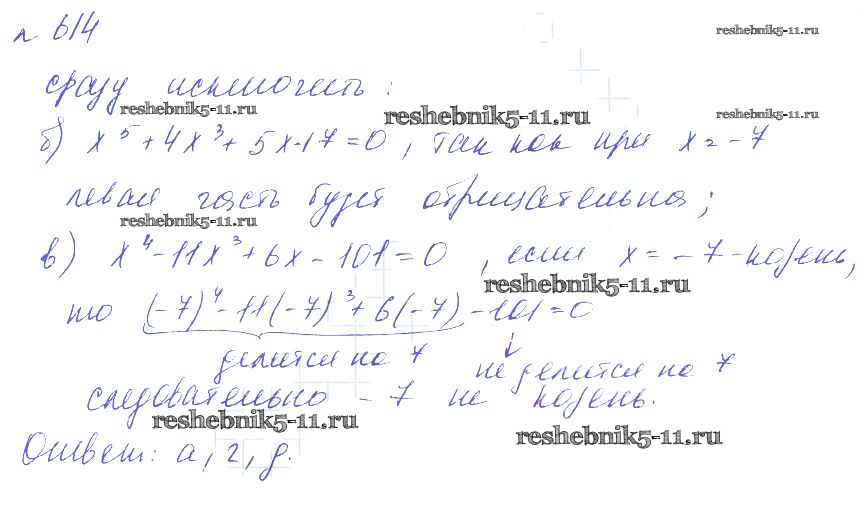 № 614
reshebnik5-11.ru
сразу исключить:
reshebnik5-11.ru
reshebnik5-11.ru
reshebnik5-11.ru
б) x⁵ + 4x³ + 5x - 17 = 0, так как при x = -7
левая часть будет отрицательна;
reshebnik5-11.ru
в) x⁴ - 11x³ + 6x - 101 = 0, если x = -7 - корень,
reshebnik5-11.ru
то (-7)⁴ - 11(-7)³ + 6(-7) - 101 = 0
делится на 7 не делится на 7
следовательно -7 не корень.
reshebnik5-11.ru
reshebnik5-11.ru
Ответ: а, г, д.